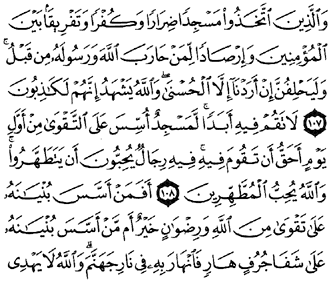 وَالَّذِينَ اتَّخَذُوا مَسْجِدًا ضِرَارًا وَكُفْرًا وَتَفْرِيقًا بَيْنَ
الْمُؤْمِنِينَ وَإِرْصَادًا لِمَنْ حَارَبَ اللَّهَ وَرَسُولَهُ مِنْ قَبْلُ ۚ
وَلَيَحْلِفُنَّ إِنْ أَرَدْنَا إِلَّا الْحُسْنَىٰ ۖ وَاللَّهُ يَشْهَدُ إِنَّهُمْ لَكَاذِبُونَ
١٠٧ لَا تَقُمْ فِيهِ أَبَدًا ۚ لَمَسْجِدٌ أُسِّسَ عَلَى التَّقْوَىٰ مِنْ أَوَّلِ
يَوْمٍ أَحَقُّ أَنْ تَقُومَ فِيهِ ۚ فِيهِ رِجَالٌ يُحِبُّونَ أَنْ يَتَطَهَّرُوا ۚ
وَاللَّهُ يُحِبُّ الْمُطَّهِّرِينَ ١٠٨ أَفَمَنْ أَسَّسَ بُنْيَانَهُ
عَلَىٰ تَقْوَىٰ مِنَ اللَّهِ وَرِضْوَانٍ خَيْرٌ أَمْ مَنْ أَسَّسَ بُنْيَانَهُ
عَلَىٰ شَفَا جُرُفٍ هَارٍ فَانْهَارَ بِهِ فِي نَارِ جَهَنَّمَ ۗ وَاللَّهُ لَا يَهْدِي